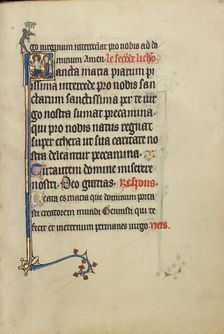 go virginum intercedat pro nobis ad do
minum Amen. le seconde lecho
Sancta maria piarum pi
issima intercede pro nobis san
ctarum sanctissima per te vir
go nostra sumat precamina
qui pro nobis natus regnat
super ethera ut sua caritate no
stra deleantur peccamina.
Tu autem domine miserere
nostri. Deo gratias. Respons.
Beata es maria que dominum porta
sti creatorem mundi Genuisti qui te
fecit et in eternum permanes virgo. vers.